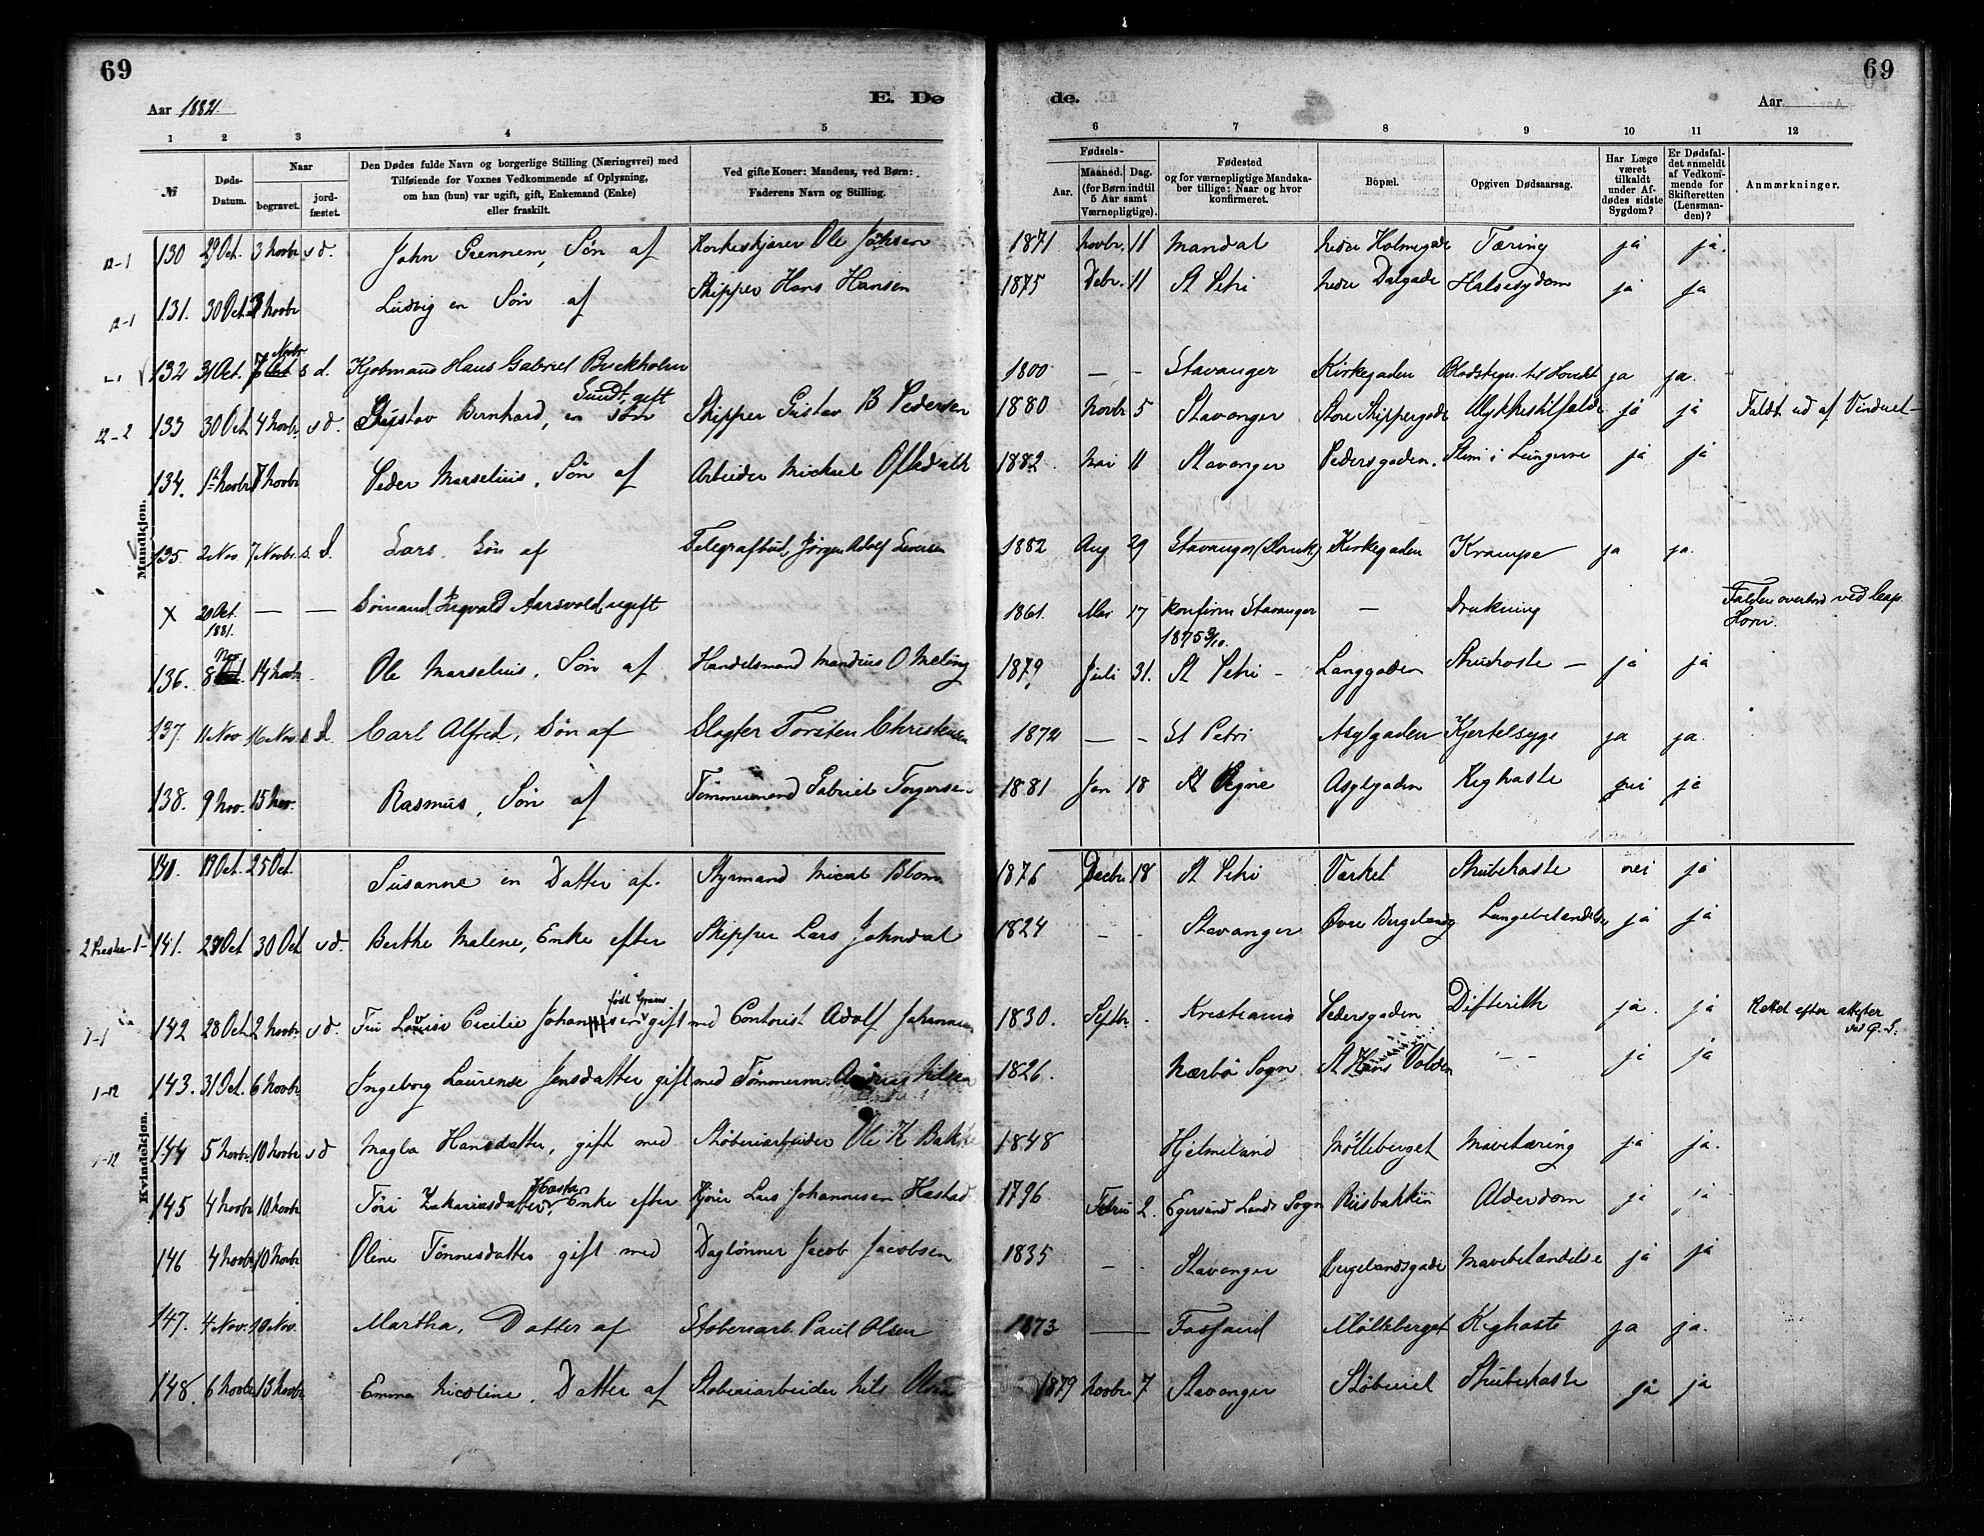 69
69
Aar 1882.
E. Dø
de.
Aar
1 2 3 4 5 6 7 8 9 10 11 12
№
Døds-Datum.
Naar
begravet.
jord-fæstet.
Den Dødes fulde Navn og borgerlige Stilling (Næringsvei) med
Tilføiende for Voxnes Vedkommende af Oplysning,
om han (hun) var ugift, gift, Enkemand (Enke)
eller fraskilt.
Ved gifte Koner: Mandens, ved Børn:
Faderens Navn og Stilling.
Fødsels-
Aar.
Maaned. Dag.
(for Børn indtil
5 Aar samt
Værnepligtige).
Fødested
og for værnepligtige Mandska-
ber tillige: Naar og hvor
konfirmeret.
Bopæl.
Opgiven Dødsaarsag.
Har Læge
været
tilkaldt
under Af-
dødes sidste
Sygdom?
Er Dødsfal-
det anmeldt
af Vedkom-
mende for
Skifteretten
(Lensman-
den)?
Anmærkninger.
Mandkjøn.
12-1 130 29 Oct. 3 Novbr s d. John Grennem, Søn af Korkeskjærer Ole Johnsen 1871 Novbr. 11 Mandal Nedre Holmegade Tæring ja ja.
12-1 131. 30 Oct. 3 Novbr Ludvig en Søn af Skipper Hans Hansen 1875 Debr. 11 St Petri Nedre Dalgade Halsesygdom ja ja
132 31 Oct. 7 Oct Novbr s d. Kjøbmand Hans Gabriel Buckholm Sundt, gift 1800 — - Stavanger Kirkegaden Blodstign. til Hovedet ja ja.
12-2 133 30 Oct. 4 Novbr. s d. Gustav Bernhard, en Søn Skipper Gustav B Pedersen 1880 Novbr 5 Stavanger Store Skippergade Ulykkestilfælde ja ja Faldt ud af Vinduet
134. 1ste Novbr 7 Novbr Peder Marselius, Søn af Arbeider Michael Oftedahl 1882 Mai 11 Stavanger Pedersgaden. Slim i Lungerne ja ja
135. 2 Nov 7 Novbr. s. d. Lars. Søn af Telegrafbud Jørgen Adolf Iversen 1882 Aug 29 Stavanger (Domk) Kirkegaden Krampe ja ja.
X 20 Oct. 1881. — — Sømand Ingvald Aarsvold, ugift 1861. Mai 17 Konfirm Stavanger 1875 3/10. — Drukning Falden overbord ved Cap Horn.
136. 8 Oct. Nov 14 Novbr Ole Marselius, Søn af Handelsmand Mandius O Meling 1879 Juli 31. St Petri - Langgaden Strubhoste — ja ja
137. 11 Nov 16 Nov. s d. Carl Alfred, Søn af Slagter Torsten Christensen 1872 — - St Petri Asylgaden Kjertelsyge ja ja.
138. 9 Nov. 15 Nov. Rasmus, Søn af Tømmermand Gabriel Torgersen 1881 Jan 18 St Asylgaden Kighoste nei ja
Kvindekjøn.
140. 19 Oct. 25 Oct. Susanne en Datter af. Styrmand Blom 1876 Decbr. 18 St Petri Varket Strubehoste nei ja
141. 23 Oct 30 Oct s d. Berthe Malene, Enke efter Skipper Lars Johndal 1824 - - Stavanger Øvre Bergelandsg Lungebetændelse ja ja
1-1 142 28 Oct. 2 Novbr s d. Fru Lovise Cecilie Johannsen født Gram gift med Contorist Adolf Johannsen 1830. Septbr. - Kristiania Pedersgaden Difterith ja. ja Rettet efter attester
1-12 143. 31 Oct. 6 Novbr Ingeborg Laurense Jensdatter gift med Tømmerm. Andreas Nilsen 1826. Nærbø Sogn St Hans Volden - - ja ja
1-12 144 5 Novbr 10 Novbr s d Magla Hansdatter, gift med Støberiarbeider Ole K Bakke 1848 Hjelmeland Mølleberget Mavetæring ja ja.
145 4 Novbr 10 Novbr Tøri Zakariasdatter, Enke efter Kjører Lars Johannesen Hæstad 1796 Febru 2. Egersund Lands Sogn Riisbakken Alderdom ja ja
146 4 Novbr. 10 Novbr. Oline Tønnesdatter gift med Dagløner Jacob Jacobsen 1835 — - Stavanger Bergelandsgade Mavebetændelse ja ja
147. 4 Nov. 10 Nov. Martha, Datter af Støberiarb. Paul Olsen 1873 — — Fossand Mølleberget Kighoste ja ja.
148. 6 Novbr 13 Novbr Emma Nicoline, Datter af Støberiarbeider Nils Olsen 1879 Novbr. 7 Stavanger Støberiet Strubehoste ja ja